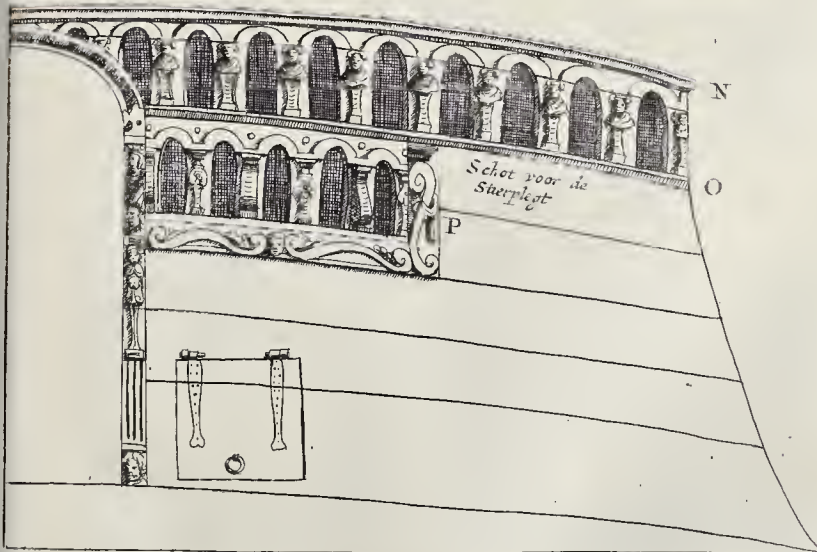 N
Schot voor de
Stierplegt
O
P